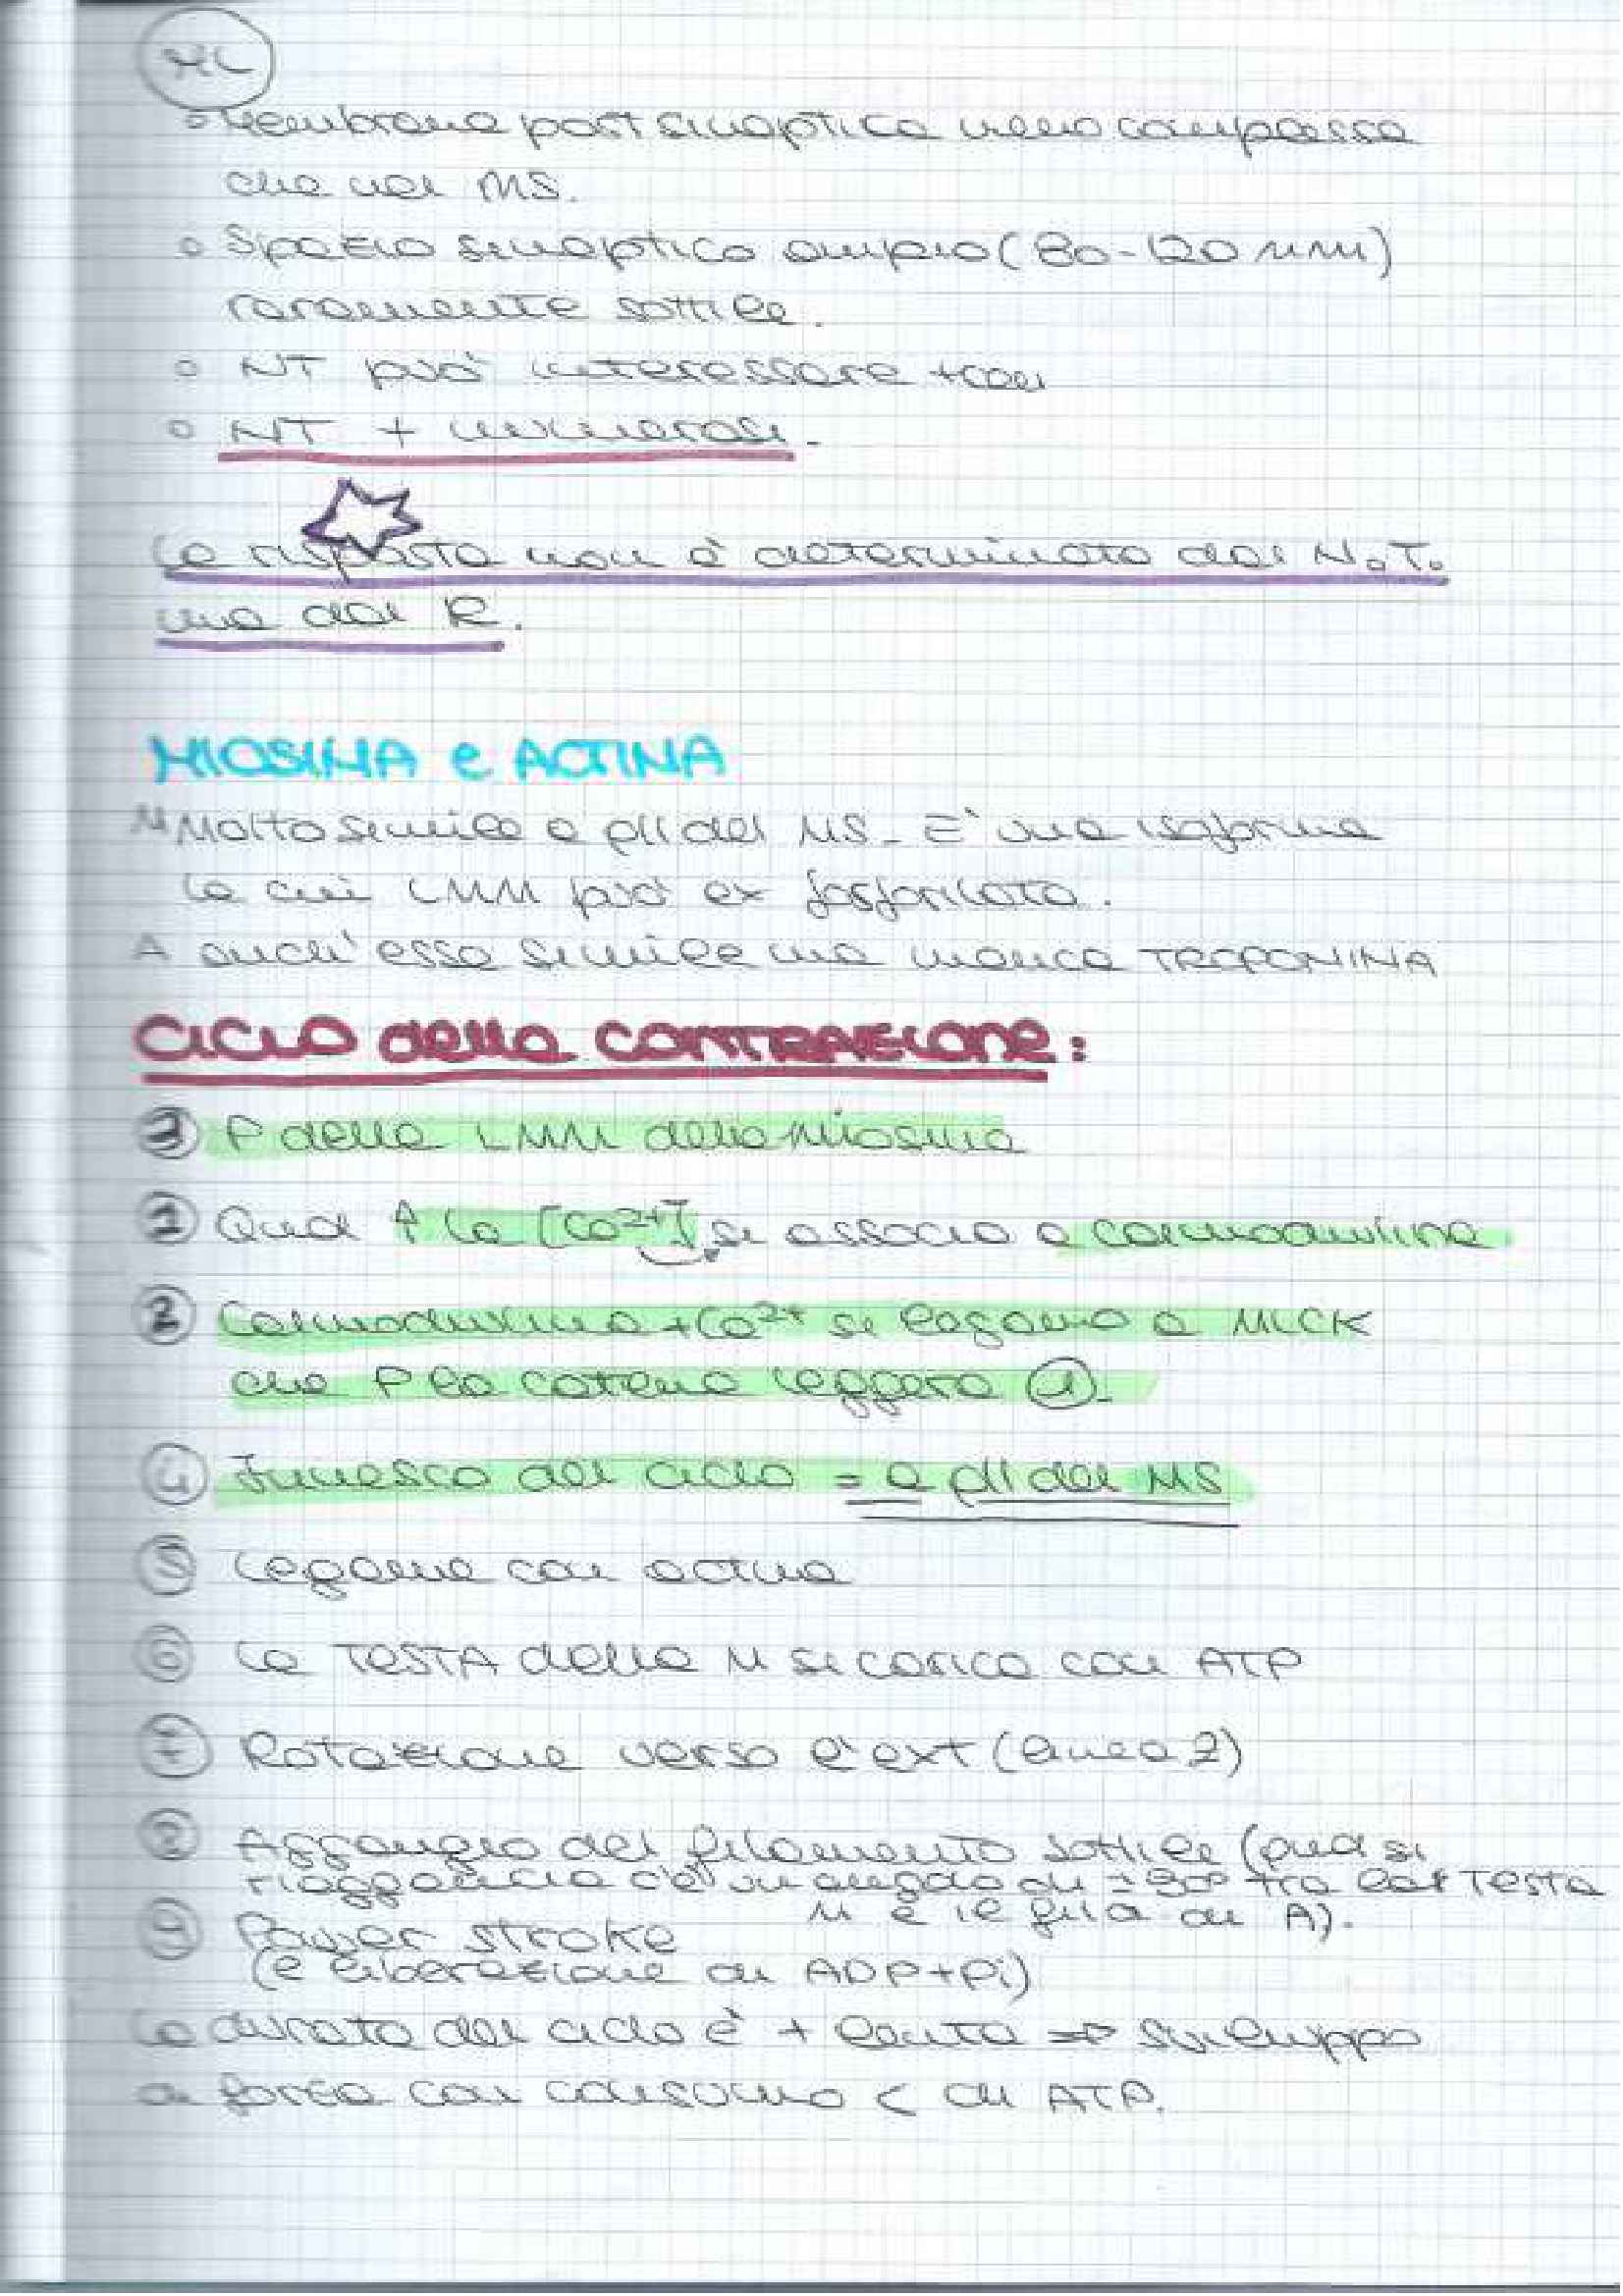 ML
◦ Membrana postsinaptica meno complessa
che nel MS.
◦ Spazio sinaptico ampio (80-120 nm)
raramente sottile.
◦ NT può interessare +cell
◦ NT + numerosi.
La risposta non è determinata dal N.T.
ma dal R.
MIOSINA e ACTINA
M Molto simile a qll del MS. E' una isoforma
la cui LMM può ex fosforilata.
A anch'essa simile ma manca TROPONINA
CICLO della CONTRAZIONE:
③ P della LMM della Miosina
① Qnd ↑ la [Ca²⁺] si associa a calmodulina
② Calmodulina + Ca²⁺ si legano a MLCK
che P la catena leggera ①.
④ Innesco del ciclo = a qll del MS
⑤ Legame con actina
⑥ La TESTA della M si carica con ATP
⑦ Rotazione verso l'ext (linea Z)
⑧ Aggancio del filamento sottile (qnd si
riaggancia c'è un angolo di = 90° tra la testa
M e il fil di A).
⑨ Power stroke
(e liberazione di ADP+Pi)
La durata del ciclo è + lenta ⇒ sviluppo
di forza con consumo < di ATP.